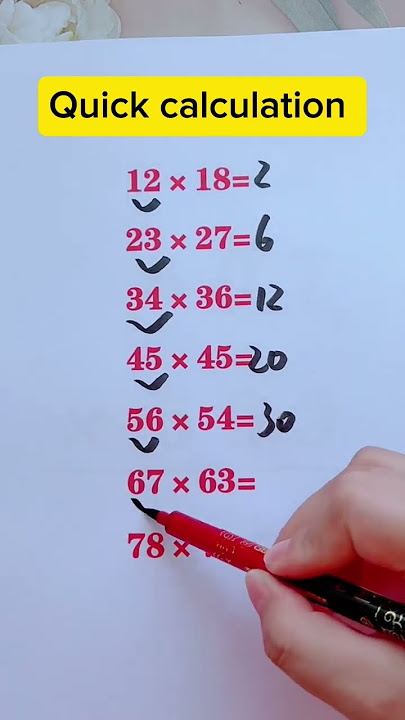 Quick calculation
12 × 18=2
23 × 27=6
34 × 36=12
45 × 45=20
56 × 54=30
67 × 63=
78 ×